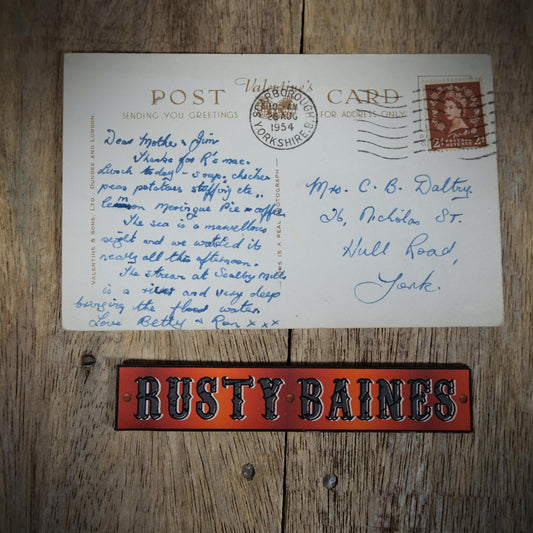 Valentine's
POST CARD
SENDING YOU GREETINGS
FOR ADDRESS ONLY
VALENTINE & SONS, LTD., DUNDEE AND LONDON
THIS IS A REAL PHOTOGRAPH
SCARBOROUGH
26 AUG
1954
YORKSHIRE
POSTAGE REVENUE
2D
Dear Mother & Jim
Thanks for R's mac.
Lunch today - soup, chicken
peas potatoes stuffing etc.,
lemon Meringue Pie & coffee
The sea is a marvellous
sight and we watched it
nearly all the afternoon.
The stream at Scalby Mills
is a river and very deep
bringing the flood water
Love Betty & Ron x x x
Mrs. C. B. Daltry,
26, Nicholas St.
Hull Road,
York.
RUSTY BAINES